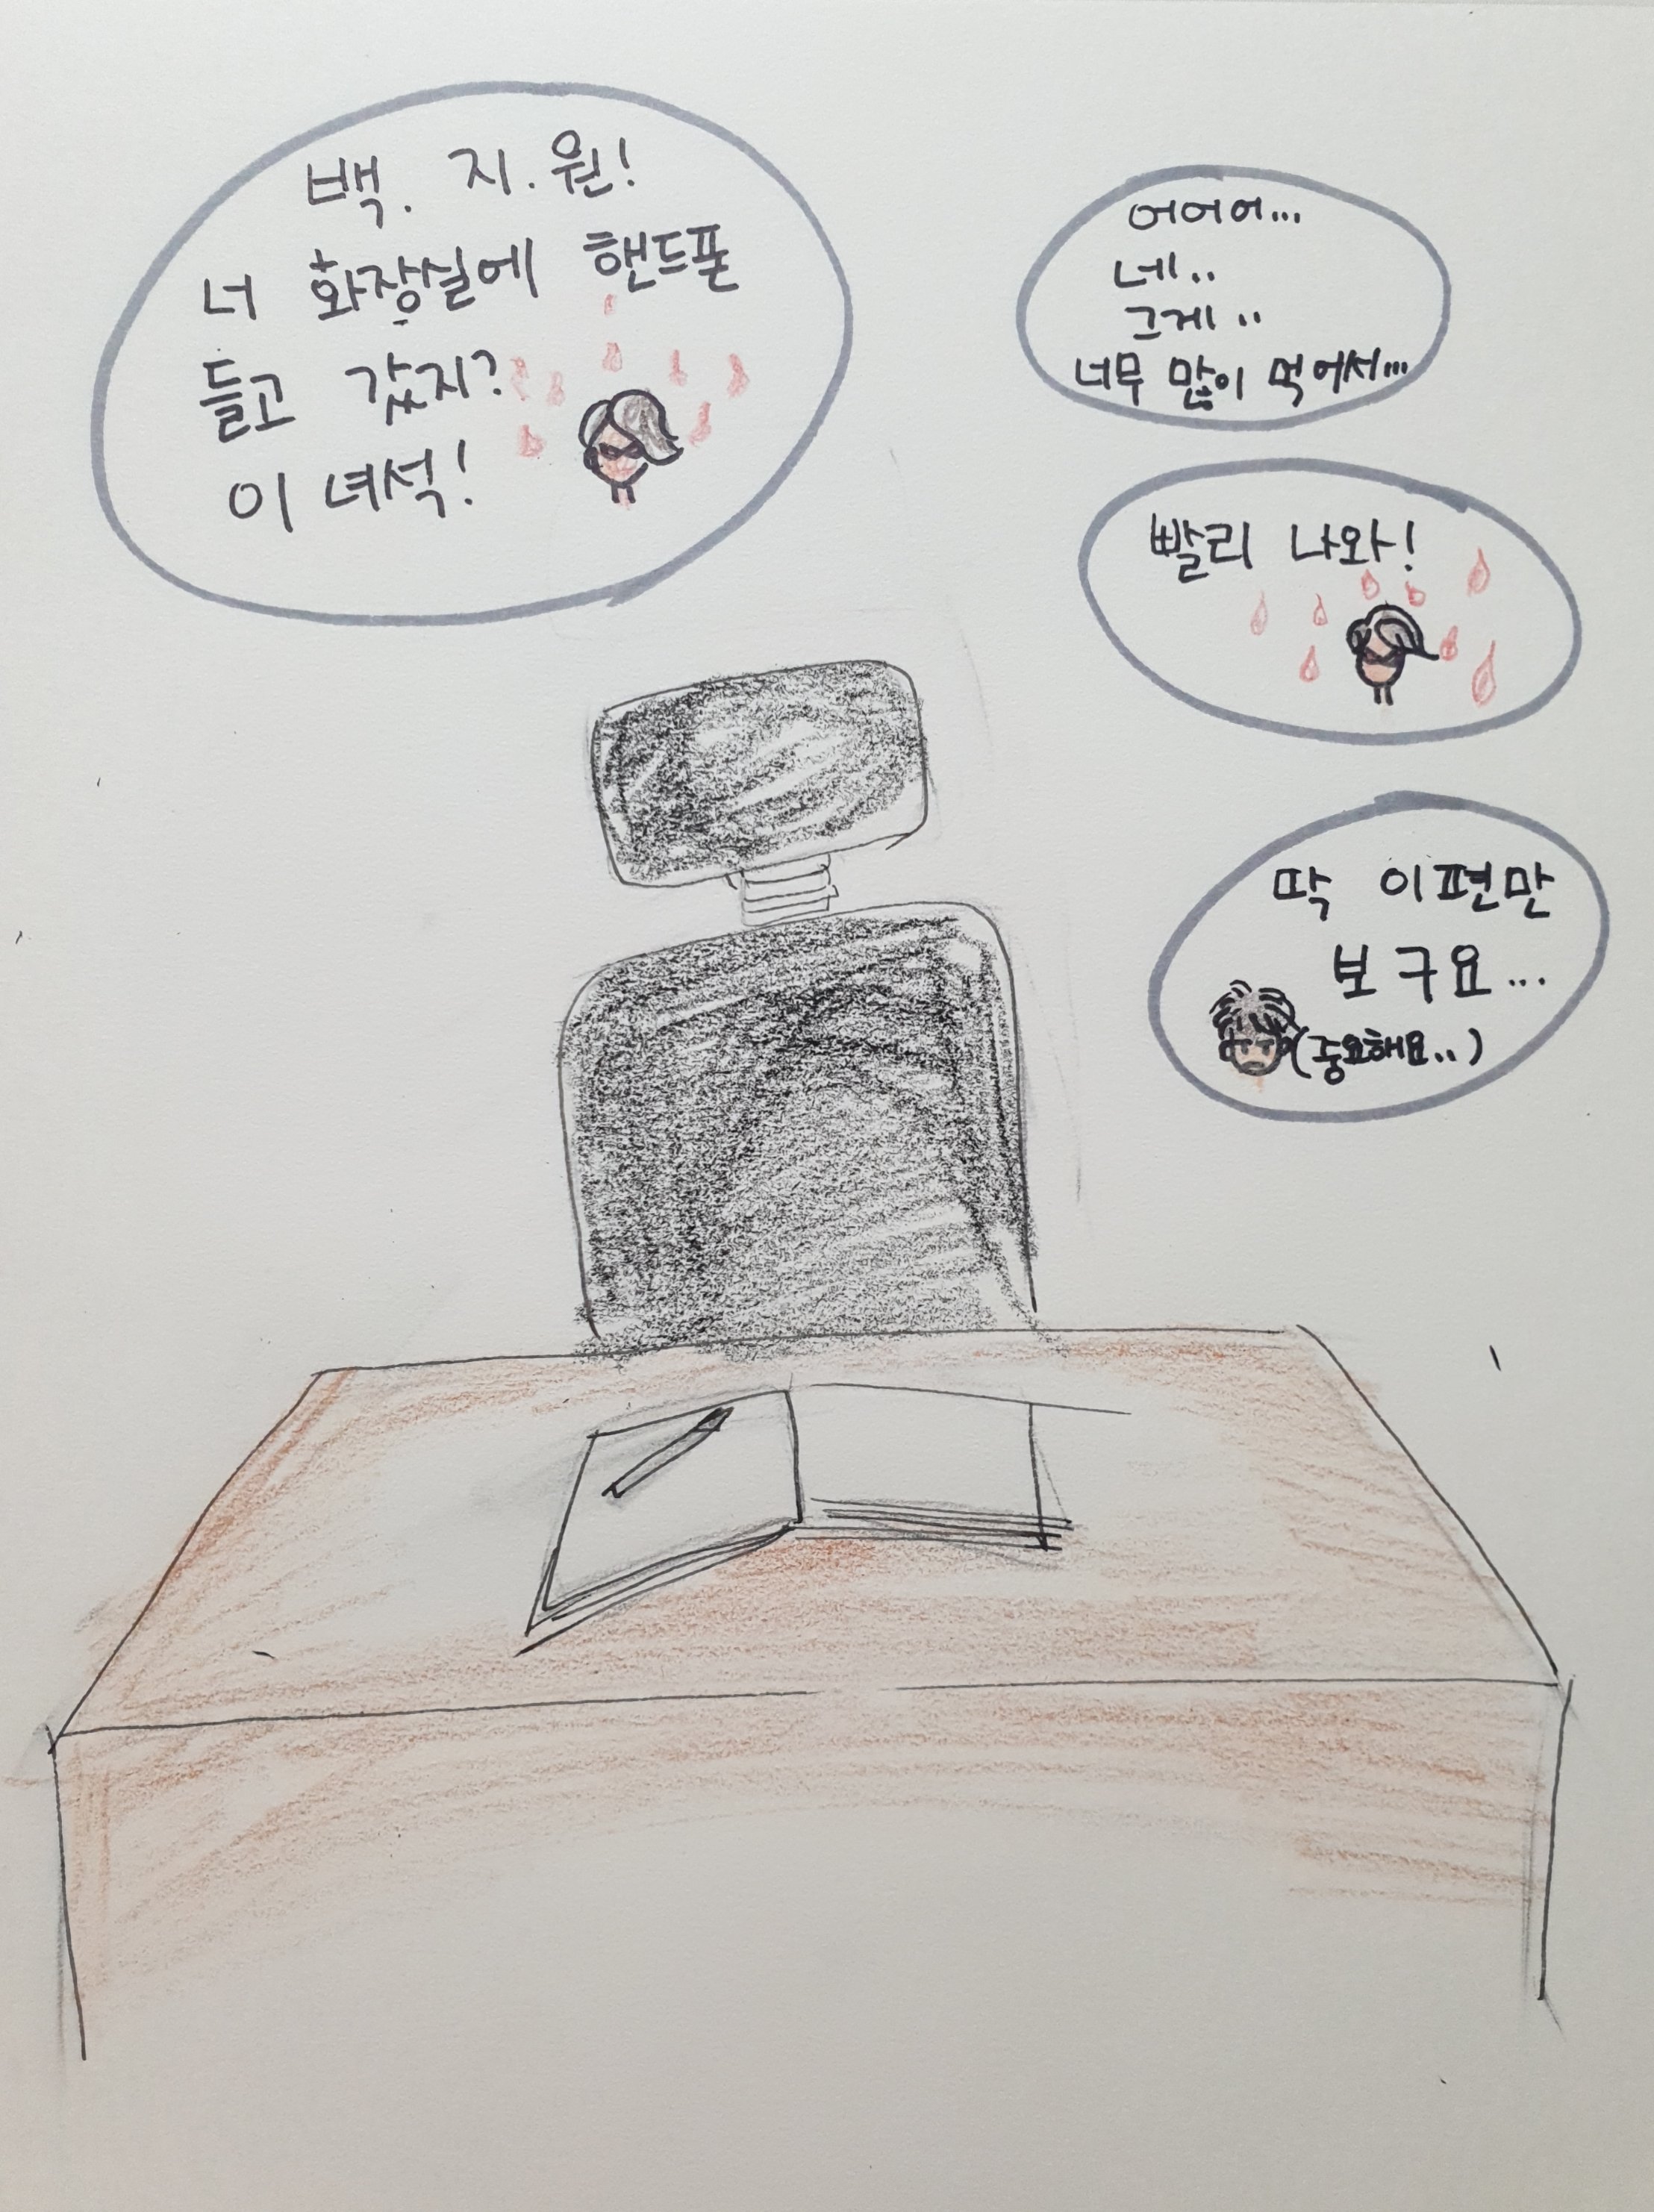 백. 지. 원!
너 화장실에 핸드폰
들고 갔지?
이 녀석!
어어어...
네..
그게..
너무 많이 먹어서...
빨리 나와!
딱 이편만
보구요...
(중요해요..)